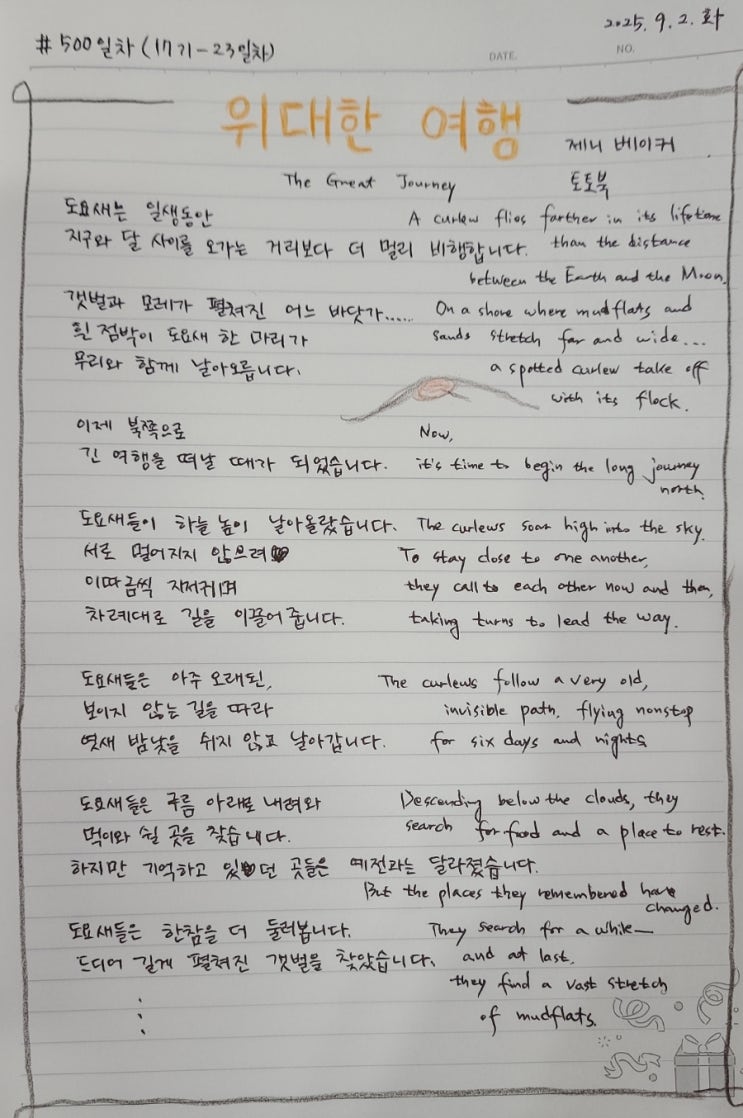 2025. 9. 2. 화
# 500일차 (17기 - 23일차)
DATE. NO.
위대한 여행
제니 베이커
The Great Journey 토토북
도요새는 일생동안 A curlew flies farther in its lifetime
지구와 달 사이를 오가는 거리보다 더 멀리 비행합니다. than the distance
between the Earth and the Moon.
갯벌과 모레가 펼쳐진 어느 바닷가...... On a shore where mudflats and
흰 점박이 도요새 한 마리가 sands stretch far and wide...
무리와 함께 날아오릅니다. a spotted curlew take off
with its flock.
이제 북쪽으로 Now,
긴 여행을 떠날 때가 되었습니다. it's time to begin the long journey
north.
도요새들이 하늘 높이 날아올랐습니다. The curlews soar high into the sky.
서로 멀어지지 않으려 To stay close to one another,
이따금씩 지저귀며 they call to each other now and then,
차례대로 길을 이끌어 줍니다. taking turns to lead the way.
도요새들은 아주 오래된, The curlews follow a very old,
보이지 않는 길을 따라 invisible path, flying nonstop
엿새 밤낮을 쉬지 않고 날아갑니다. for six days and nights
도요새들은 구름 아래로 내려와 Descending below the clouds, they
먹이와 쉴 곳을 찾습니다. search for food and a place to rest.
하지만 기억하고 있던 곳들은 예전과는 달라졌습니다.
But the places they remembered have
changed.
도요새들은 한참을 더 둘러봅니다. They search for a while—
드디어 길게 펼쳐진 갯벌을 찾았습니다. and at last,
they find a vast stretch
of mudflats.